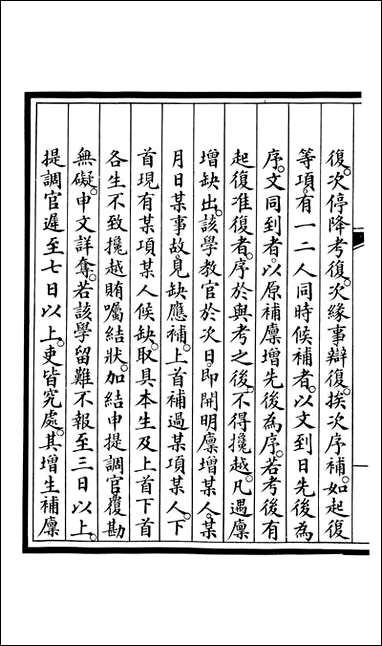 復。次停降考復。次緣事辯復。挨次序補。如起復
等項。有一二人同時候補者。以文到日先後為
序。文同到者。以原補廩增先後為序。若考後有
起復准復者。序於與考之後。不得攙越。凡遇廩
增缺出。該學教官於次日即開明廩增某人。某
月日某事故。見缺應補。上首補過某項某人。下
首現有某項某人候缺。取具本生及上首下首
各生不致攙越賄囑結狀。加結申提調官覆勘
無礙。申文詳奪。若該學留難不報至三日以上。
提調官遲至七日以上。吏皆究處。其增生補廩